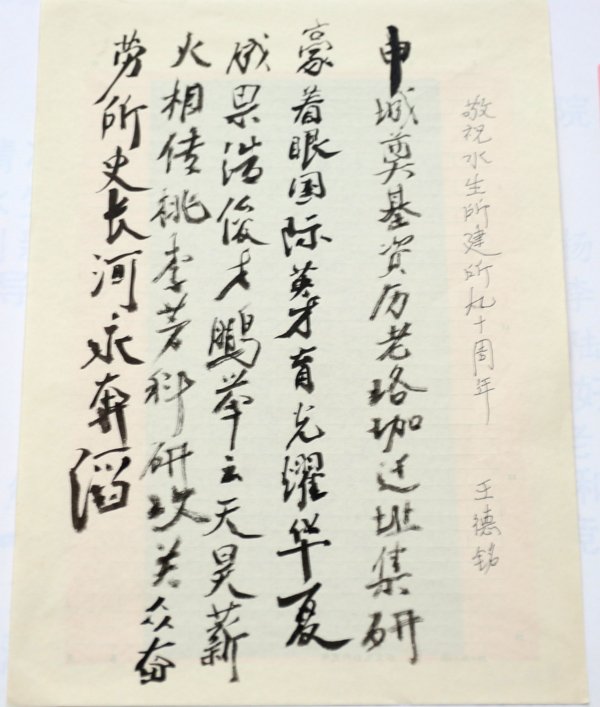 敬祝水生所建所九十周年 王德铭
申城奠基资历老珞珈迁址集研
豪着眼国际英才育光耀华夏
成果浩俊才鹏举云天昊薪
火相传桃李科研攻关众奋
劳所史长河永奔滔